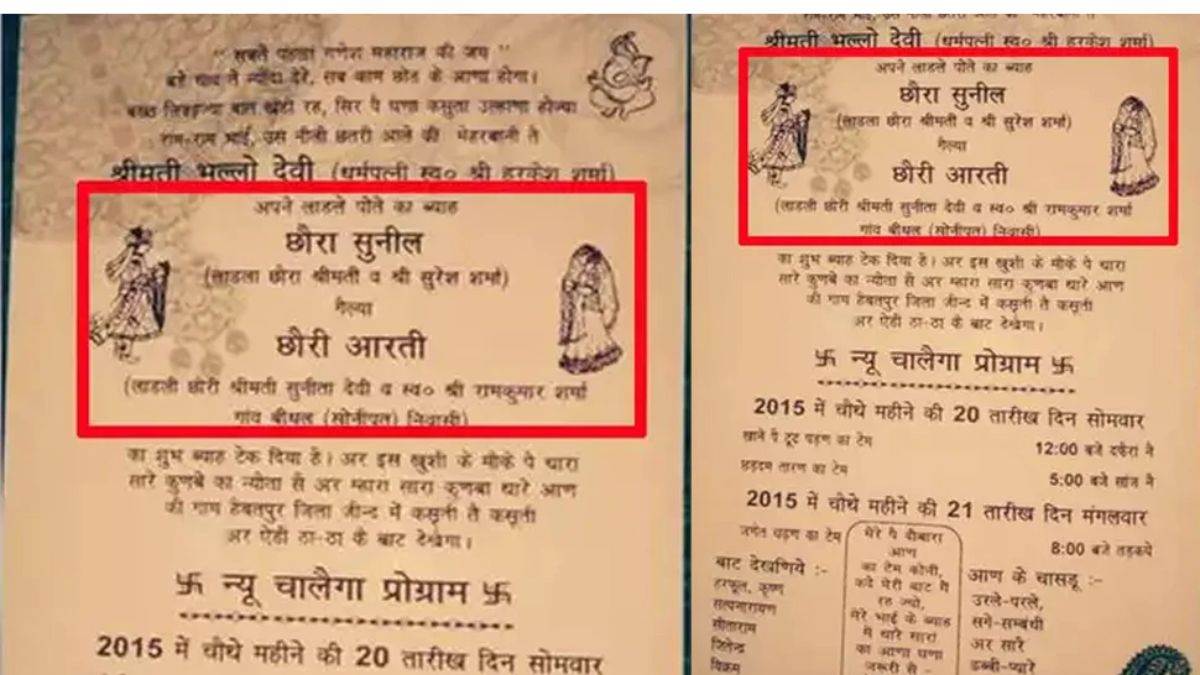 “ सबतै पहला गणेश महाराज की जय ”
बड़े चाव तै न्यौंदा देरे, सब काम छोड के आणा होगा।
सिर पै घणा कसुता उल्हाणा होज्या
राम-राम भाई, उस नीली छतरी आले की मेहरबानी तै
श्रीमती भल्लो देवी (धर्मपत्नी स्व० श्री हरकेश शर्मा)
अपने लाडले पोते का ब्याह
छौरा सुनील
(लाडला छौरा श्रीमती व श्री सुरेश शर्मा)
गैल्या
छौरी आरती
(लाडली छोरी श्रीमती सुनीता देवी व स्व० श्री रामकुमार शर्मा
गांव बीधल (सोनीपत) निवासी)
का शुभ ब्याह टेक दिया है। अर इस खुशी के मौके पे थारा
सारे कुणबे का न्योता सै अर म्हारा सारा कुणबा थारे आण
की गाम हैबतपुर जिला जीन्द में कसुती तै कसुती
अर ऐडी ठा-ठा कै बाट देखेगा।
卐 न्यू चालैगा प्रोग्राम 卐
2015 में चौथे महीने की 20 तारीख दिन सोमवार
श्रीमती भल्लो देवी (धर्मपत्नी स्व० श्री हरकेश शर्मा)
अपने लाडले पोते का ब्याह
छौरा सुनील
(लाडला छौरा श्रीमती व श्री सुरेश शर्मा)
गैल्या
छौरी आरती
(लाडली छौरी श्रीमती सुनीता देवी व स्व० श्री रामकुमार शर्मा
गांव बीधल (सोनीपत) निवासी)
का शुभ ब्याह टेक दिया है। अर इस खुशी के मौके पे थारा
सारे कुणबे का न्योता सै अर म्हारा सारा कुणबा थारे आण
की गाम हैबतपुर जिला जीन्द में कसुती तै कसुती
अर ऐडी ठा-ठा कै बाट देखेगा।
卐 न्यू चालैगा प्रोग्राम 卐
2015 में चौथे महीने की 20 तारीख दिन सोमवार
खाने पै टूट पड़ण का टेम 12:00 बजे दफैरा नै
तारण का टेम 5:00 बजे सांज नै
2015 में चौथे महीने की 21 तारीख दिन मंगलवार
चढ़ण का टेम 8:00 बजे तड़कये
बाट देखणिये :-
हरफूल, कृष्ण
सत्यनारायण
सीताराम
जितेन्द्र
विक्रम
मेरे पै दौबारा
आण
का टेम कोनी,
कदे मेरी बाट मै
रह ज्यो,
मेरे भाई के ब्याह
में थारे सारां
का आणा घणा
जरूरी सै -
आण के चासडू :-
उरले-परले,
सगे-सम्बंधी
अर सारे
डब्बी-प्यारे